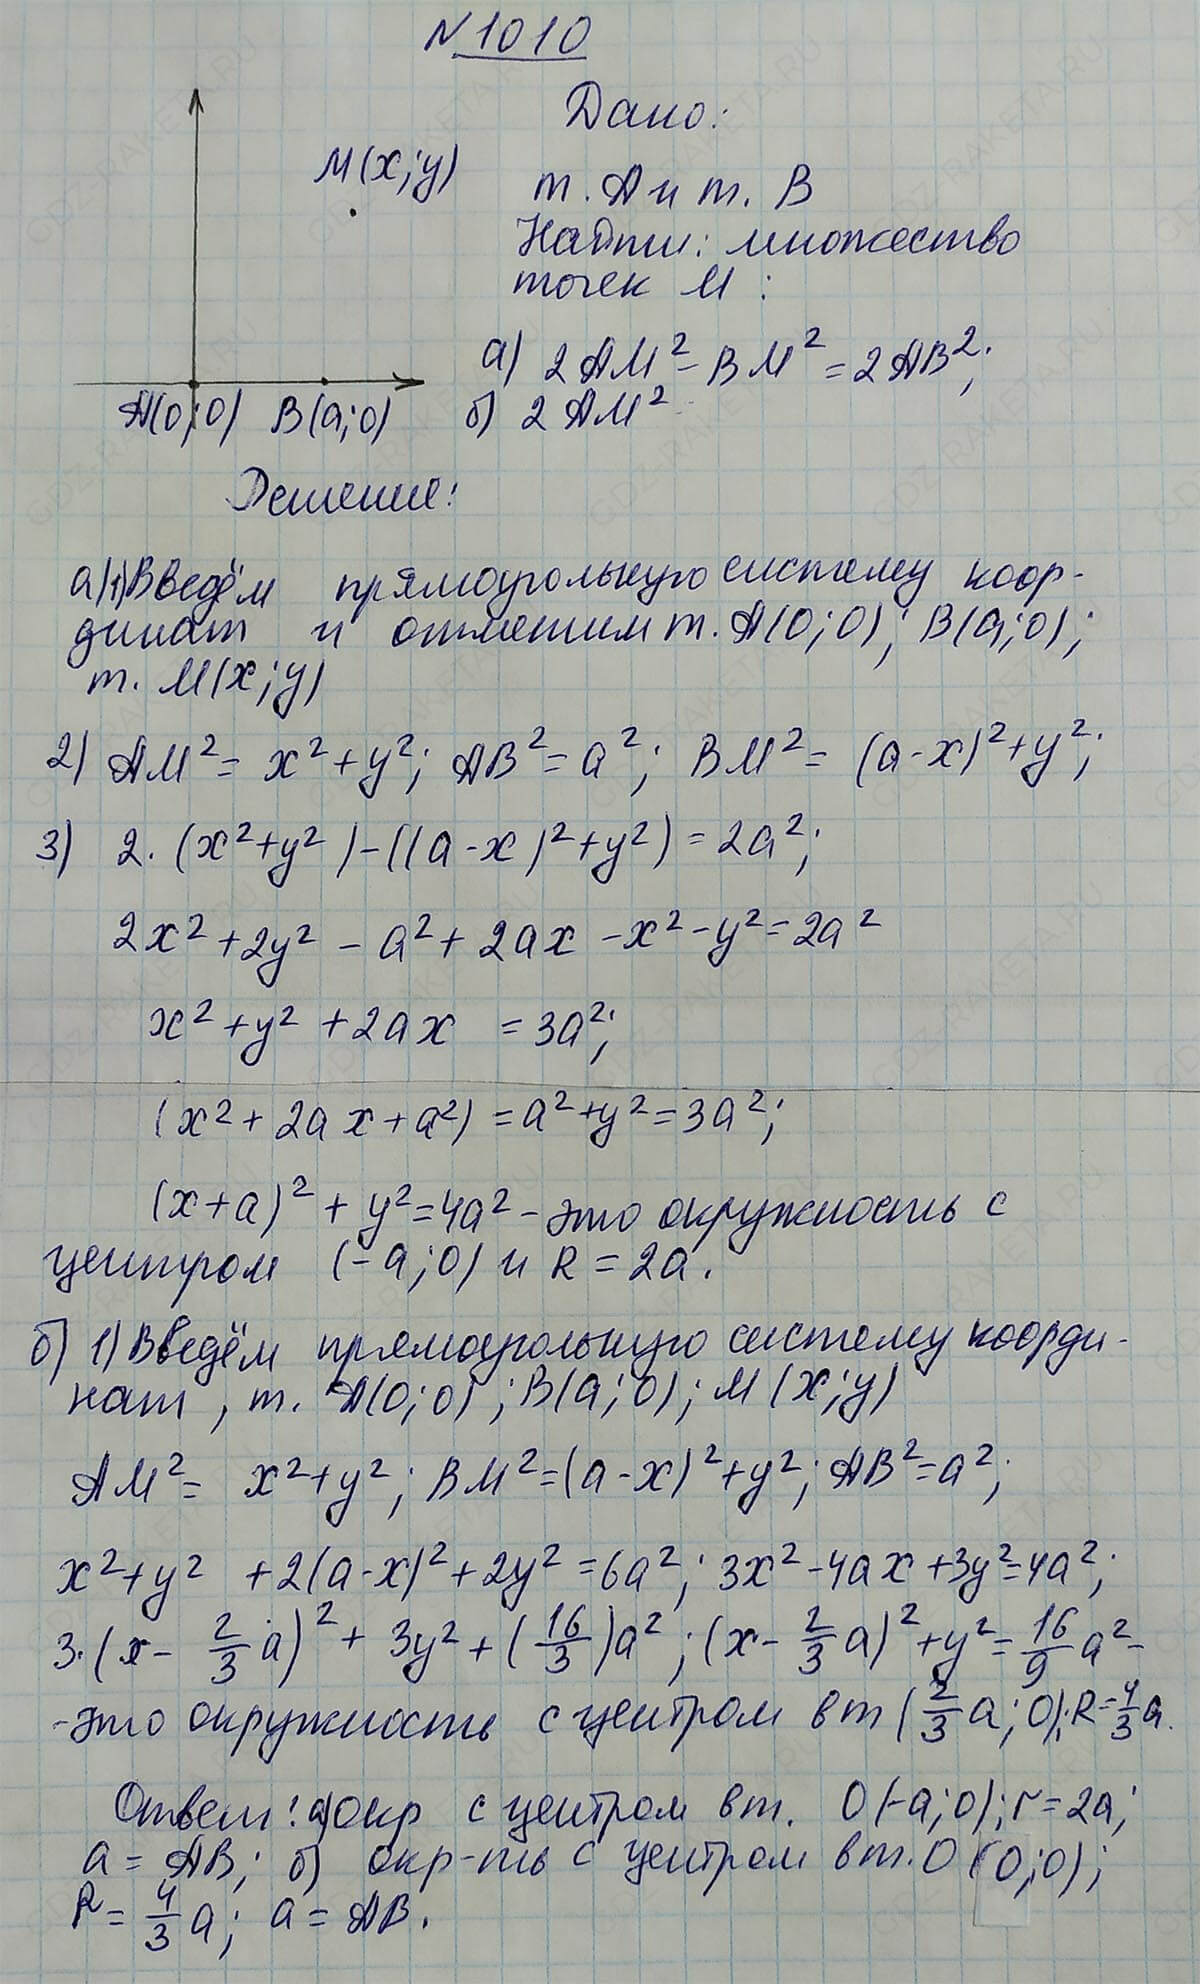 N 1010
Дано:
M(x;y)
т. A и т. B
Найти: множество
точек M :
а) 2AM² - BM² = 2AB²;
A(0;0) B(a;0)
б) 2AM²
Решение:
а) 1) Введём прямоугольную систему коор-
динат и отметим т. A(0;0); B(a;0);
т. M(x;y)
2) AM² = x² + y²; AB² = a²; BM² = (a-x)² + y²;
3) 2·(x²+y²) - ((a-x)²+y²) = 2a²;
2x² + 2y² - a² + 2ax - x² - y² = 2a²
x² + y² + 2ax = 3a²;
(x² + 2ax + a²) = a² + y² = 3a²;
(x+a)² + y² = 4a² - это окружность с
центром (-a;0) и R = 2a.
б) 1) Введём прямоугольную систему коорди-
нат, т. A(0;0); B(a;0); M(x;y)
AM² = x² + y²; BM² = (a-x)² + y²; AB² = a²;
x² + y² + 2(a-x)² + 2y² = 6a²; 3x² - 4ax + 3y² = 4a²;
3·(x - 2/3 a)² + 3y² + (16/3)a²; (x - 2/3 a)² + y² = 16/9 a² -
- это окружность с центром в т (2/3 a; 0); R = 4/3 a.
Ответ: а) окр с центром в т. O(-a;0); r = 2a;
a = AB; б) окр-ть с центром в т. O(0;0);
R = 4/3 a; a = AB.